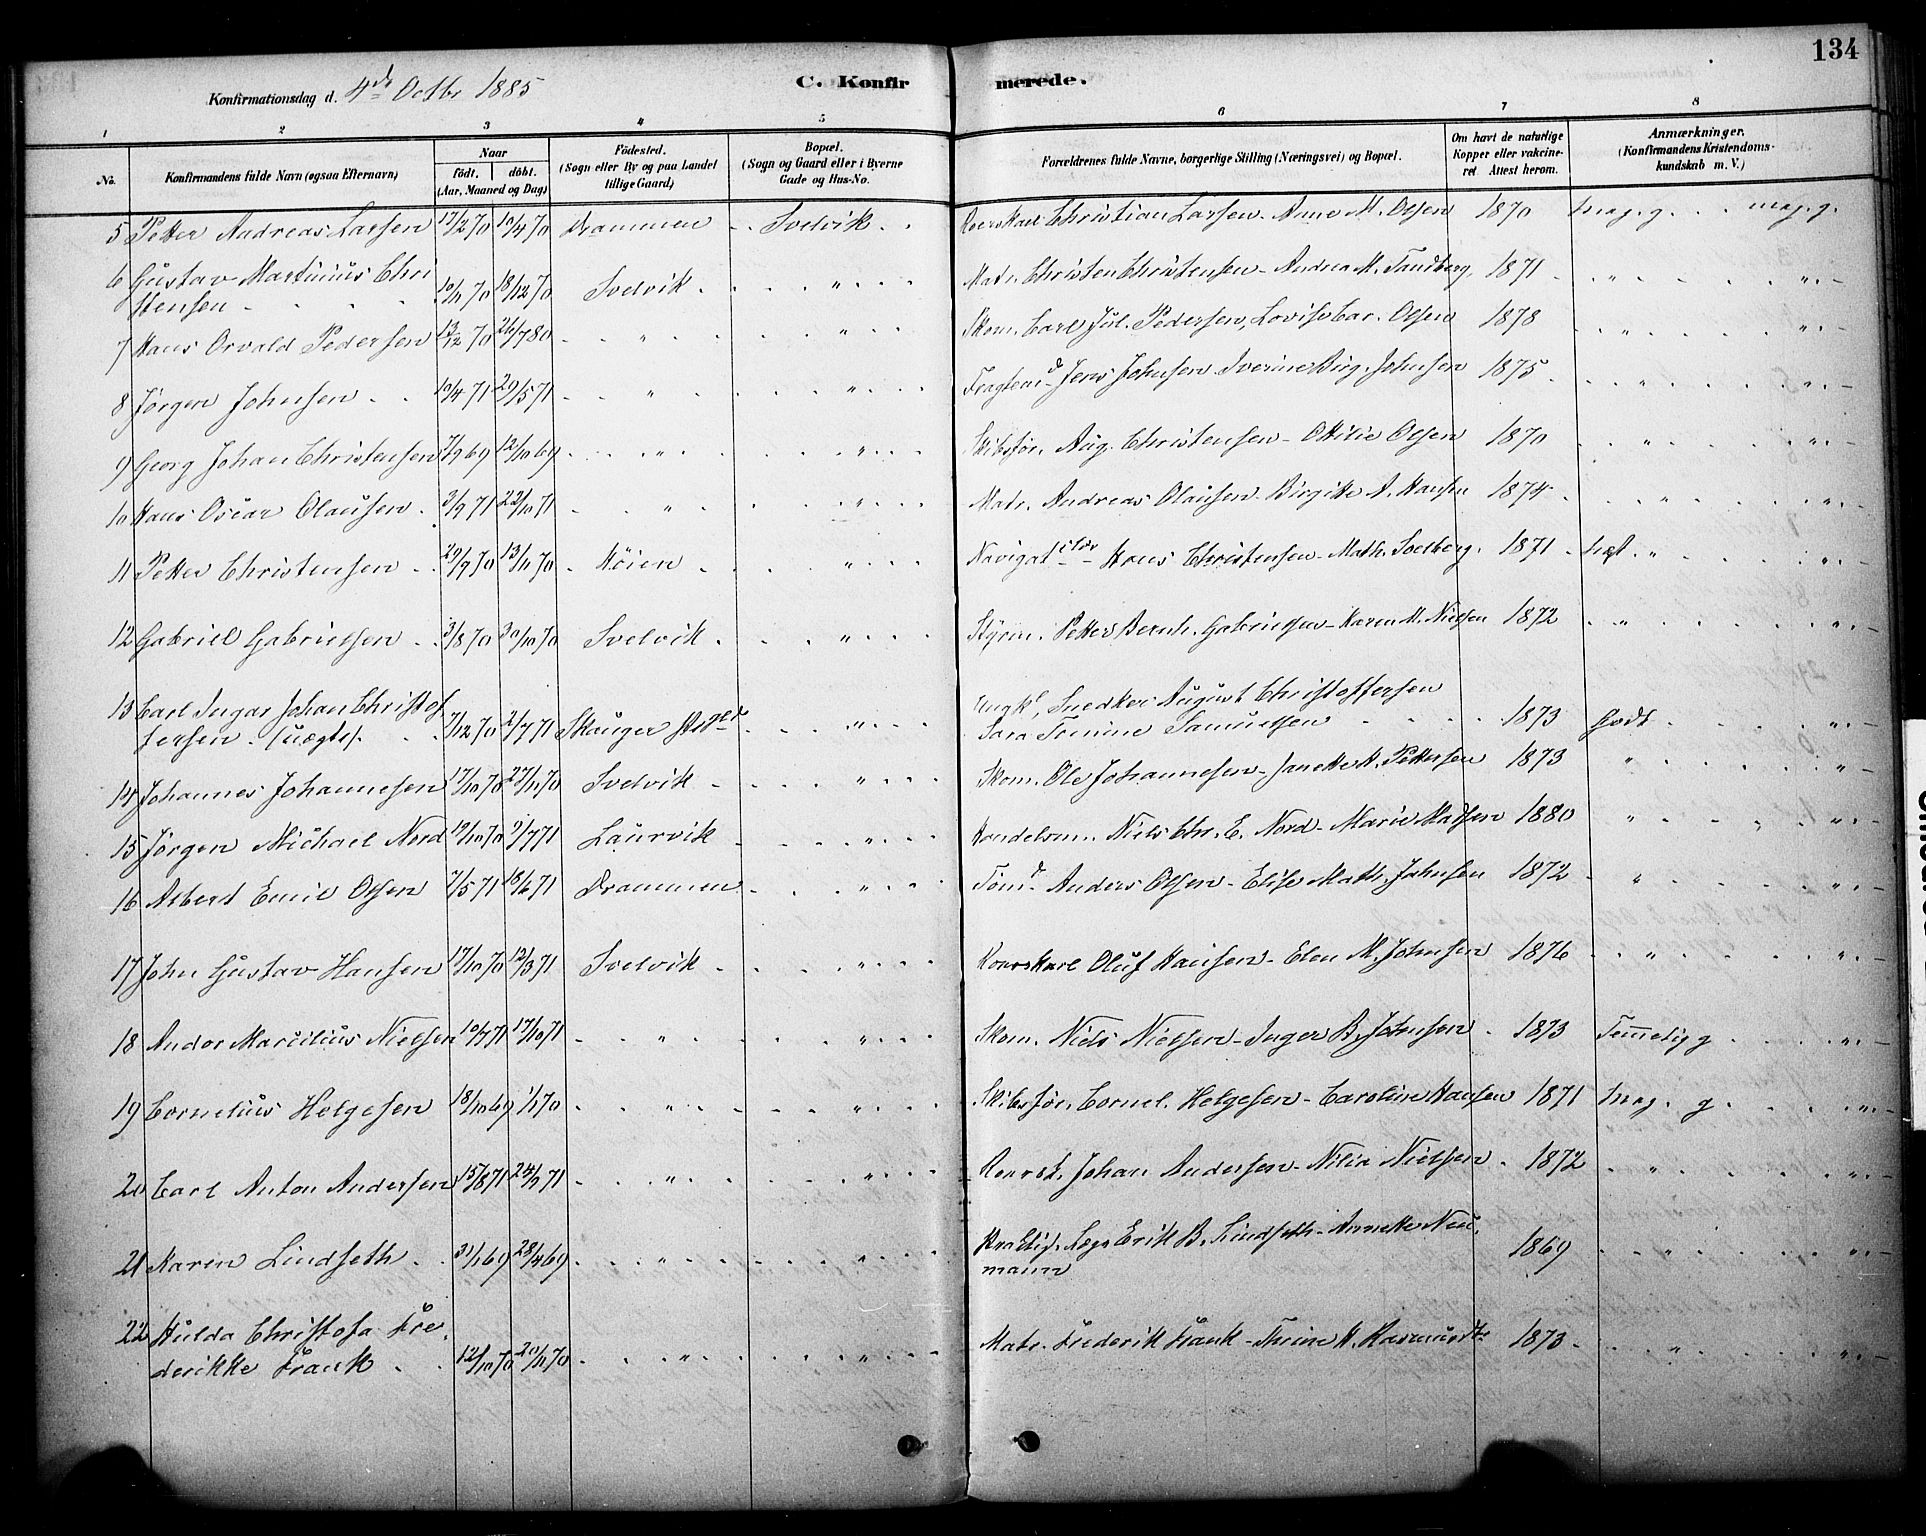 134
Konfirmationsdag d. 4de Octbr 1885
C. Konfirmerede.
1 2 3 4 5 6 7 8
No. Konfirmandens fulde Navn (ogsaa Efternavn) Naar født. døbt. (Aar, Maaned og Dag) Fødested. (Sogn eller By og paa Landet tillige Gaard) Bopæl. (Sogn og Gaard eller i Byerne Gade og Hus-No. Forældrenes fulde Navne, borgerlige Stilling (Næringsvei) og Bopæl. Om havt de naturlige Kopper eller vakcineret Attest herom. Anmærkninger. (Konfirmandens Kristendomskundskab m. V.)
5 Petter Andreas Larsen 17/2 70 10/4 70 Drammen Svelvik Christian Larsen - Anne M. Olsen 1870 meg. g. meg. g.
6 Gustav Martinius Christensen 10/11 70 18/12 70 Svelvik " Matr. Christen Christensen - Andrea M. Tandberg 1871 " "
7 Hans Orvald Pedersen 13/12 70 26/7 80 " " Skom. Carl Jul. Pedersen, Lovise Car. Olsen 1878 " "
8 Jørgen Johnsen 10/4 71 29/5 71 " " Jens Johnsen Iverine Birg. Johnsen 1875 " "
9 Georg Johan Christensen 7/9 69 12/10 69 " " Skibsfør. Aug. Christensen - Ottilie Olsen 1870 " "
10 Hans Oscar Olausen 3/9 71 22/10 71 " " Matr. Andreas Olausen Birgitte A. Hansen 1874 " "
11 Petter Christensen 29/9 70 13/11 70 Høien " Hans Christensen - Math. Solberg 1871 " "
12 Gabriel Gabrielsen 3/8 70 30/10 70 Svelvik " Styrm. Petter Bernh. Gabrielsen - Karen M. Nielsen 1872 " "
13 Carl Ingar Johan Christoffersen (uægte) 7/12 70 2/7 71 Skouger " Ungk. Snedker August Christoffersen Sara Trinine Samuelsen 1873 Godt "
14 Johannes Johannesen 17/10 70 27/11 70 Svelvik " Skom. Ole Johannesen - Janette H. Pettersen 1873 " "
15 Jørgen Michael Nord 19/10 70 9/7 71 Laurvik " Handelsm. Niels Chr. E. Nord - Marie Madsen 1880 " "
16 Albert Emil Olsen 7/5 71 18/6 71 Drammen " Anders Olsen - Elise Math. Johnsen 1872 " "
17 John Gustav Hansen 17/10 70 12/3 71 Svelvik " Oluf Hansen - Elen M. Johnsen 1876 " "
18 Andor Marcilius Nielsen 10/7 71 17/10 71 " " Skom. Niels Nielsen - Inger B. Johnsen 1873 Temmelig g "
19 Cornelius Helgesen 18/10 69 1/1 70 " " Skibsfør. Cornel. Helgesen - Caroline Hansen 1871 meg. g. "
20 Carl Anton Andersen 15/8 71 24/9 71 " " Johan Andersen - Nilia Nielsen 1872 " "
21 Karen Lindseth 31/1 69 28/4 69 " " Erik B. Lindseth - Annette Neumann 1869 " "
22 Hulda Christofa Frederikke Frank 12/10 70 20/11 70 " " Matr. Frederik Frank - Thrine H. 1873 " "